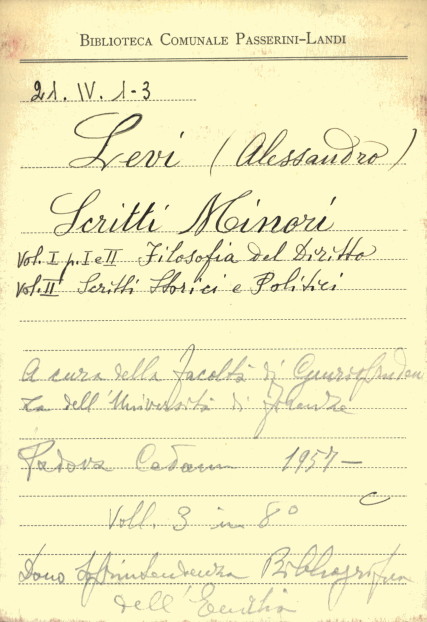 BIBLIOTECA COMUNALE PASSERINI-LANDI
21. IV. 1-3
Levi (Alessandro)
Scritti Minori
Vol. I p. I e II Filosofia del Diritto
Vol. II Scritti Storici e Politici
A cura della Facoltà di Giurispruden
za dell'Università di Firenze
Padova Cedam 1957-
C
Voll. 3 in 8°
Dono Soprintendenza Bibliografica
dell'Emilia